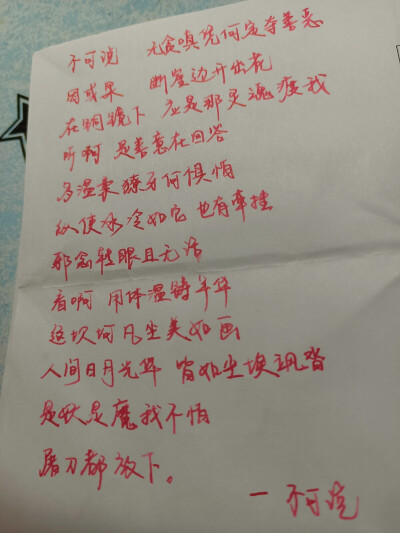 不可说 无贪嗔凭何定夺善恶
因或果 断崖边开出花
在铜镜下 应是那灵魂我
听啊 是善意在回答
多温柔獠牙何惧怕
纵使冰冷如它 也有牵挂
邪念转眼且无话
看啊 用体温铸年华
这坎坷凡尘美如画
人间日月光华 皆如尘埃飒沓
是妖是魔我不怕
屠刀都放下。
— 不可说